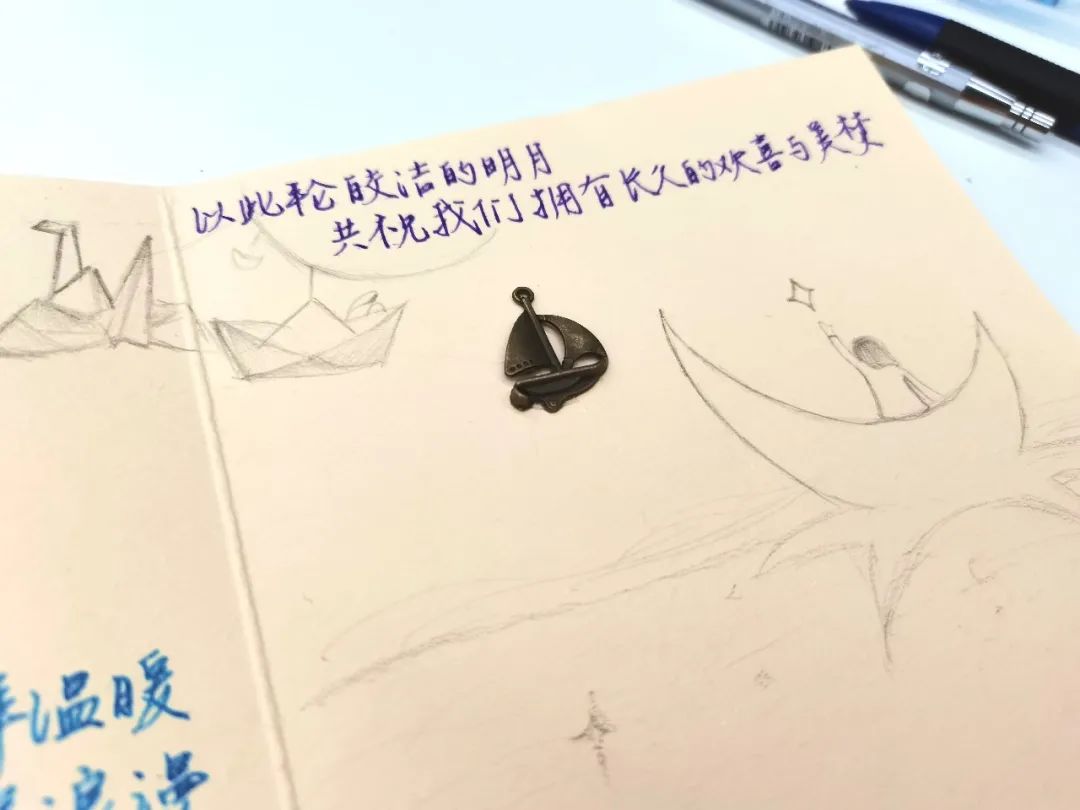 以此轮皎洁的明月
共祝我们拥有长久的欢喜与美梦
温暖
浪漫